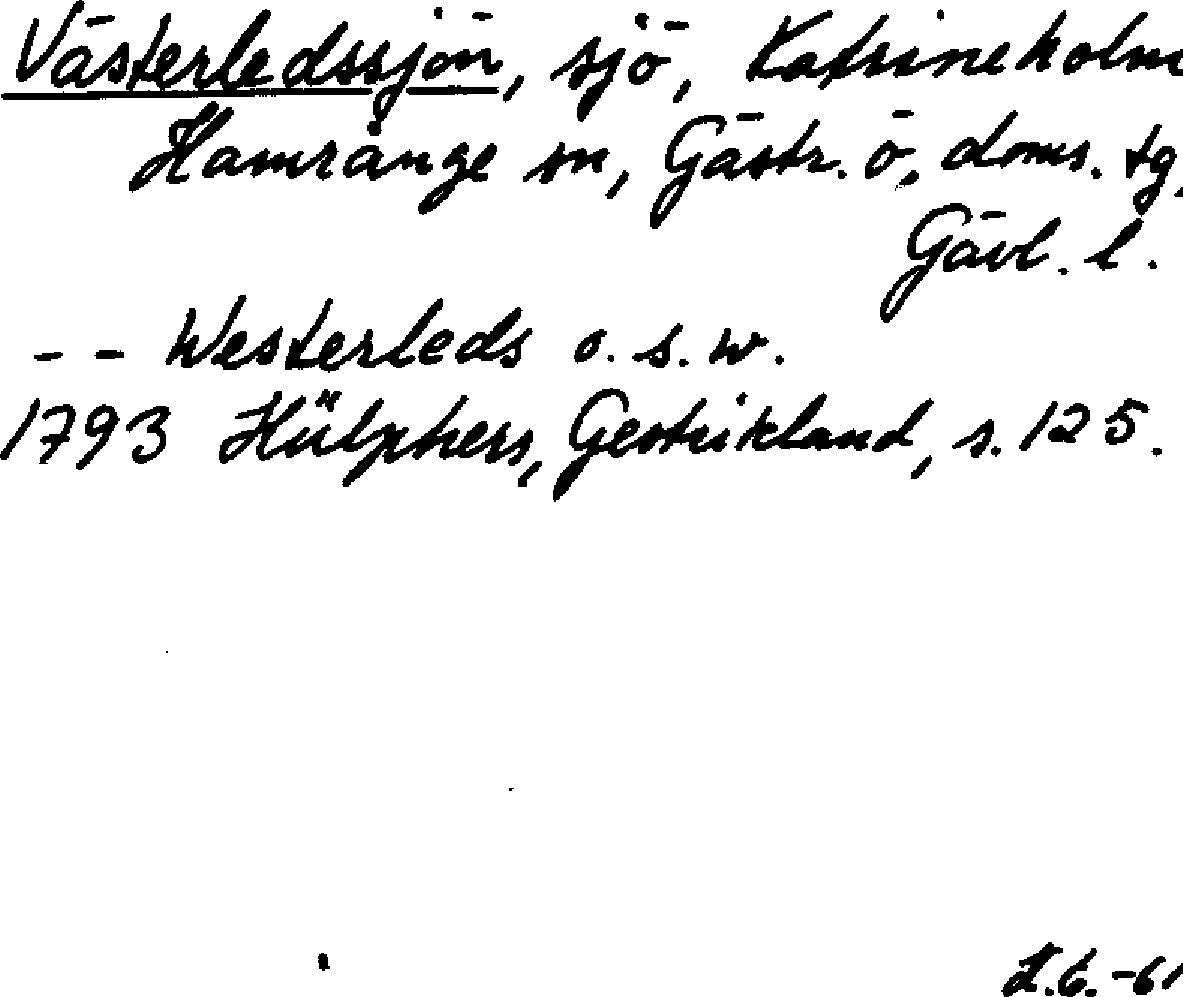 Västerledssjön, sjö, Katrineholm
Hamrånge sn, Gästr. ö. doms. tg,
Gävl. l.
-- Westerleds o. s. w.
1793 Hülphers, Gestrikland, s. 125.
K.G. -61